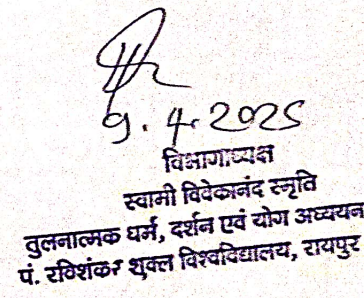 9.4.2025
विभागाध्यक्ष
स्वामी विवेकानंद स्मृति
तुलनात्मक धर्म, दर्शन एवं योग अध्ययन
पं. रविशंकर शुक्ल विश्वविद्यालय, रायपुर